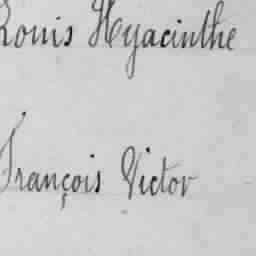 Louis Hyacinthe
François Victor